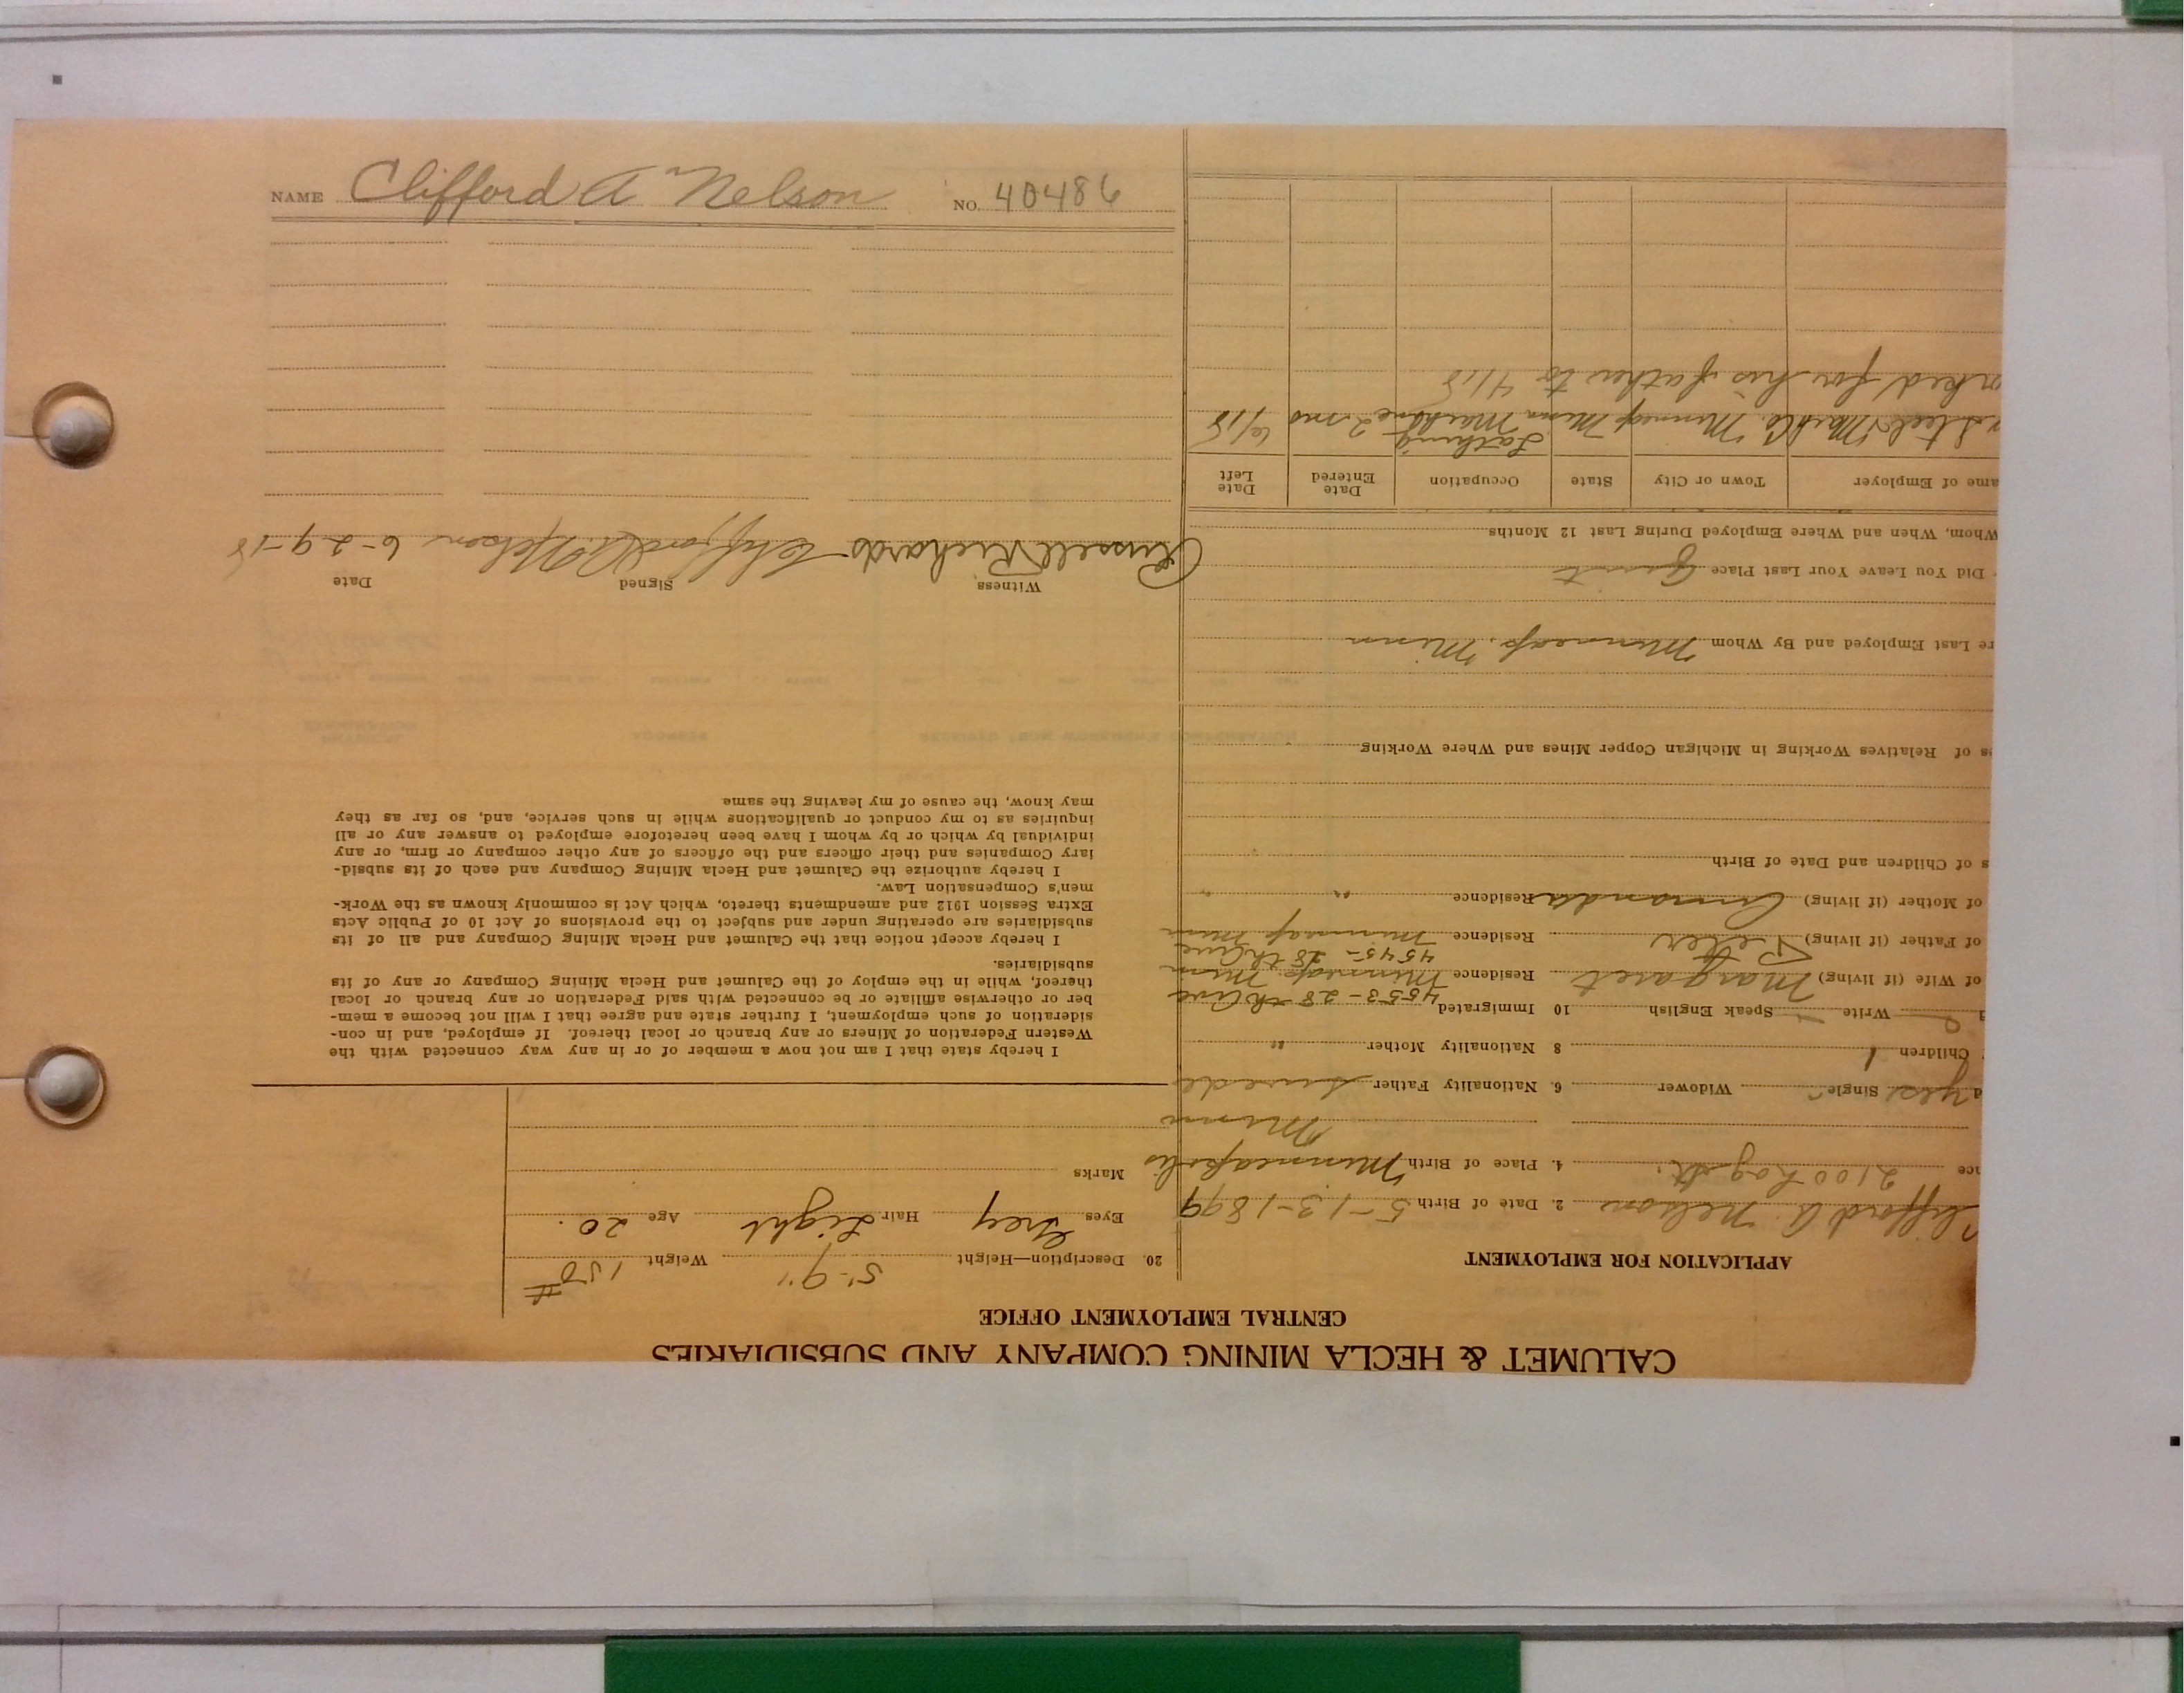 NAME Clifford A Nelson NO. 40486
CALUMET & HECLA MINING COMPANY AND SUBSIDIARIES
CENTRAL EMPLOYMENT OFFICE
APPLICATION FOR EMPLOYMENT
Clifford A. Nelson 2. Date of Birth 5-13-1899
nce 2100 4. Place of Birth Minneapolis
Minn
d yes Single Widower 6. Nationality Father Swede
Children 1 8 Nationality Mother "
Write Speak English 10 Immigrated
4553-28th Ave
of Wife (if living) Margaret Residence Minneap. Minn
4545-28th Ave
of Father (if living) Peter Residence Minneap Minn
of Mother (if living) Amanda Residence " "
s of Children and Date of Birth
s of Relatives Working in Michigan Copper Mines and Where Working
re Last Employed and By Whom Minneap. Minn
Did You Leave Your Last Place
Whom, When and Where Employed During Last 12 Months
ame of Employer Town or City State Occupation Date Entered Date Left
Steel Mach Co. Minneap Minn Machine 2 mo 6/18
orked for his father to 4/18
20. Description—Height 5'-9" Weight 150#
Eyes Grey Hair Light Age 20.
Marks
I hereby state that I am not now a member of or in any way connected with the
Western Federation of Miners or any branch or local thereof. If employed, and in con-
sideration of such employment, I further state and agree that I will not become a mem-
ber or otherwise affiliate or be connected with said Federation or any branch or local
thereof, while in the employ of the Calumet and Hecla Mining Company or any of its
subsidiaries.
I hereby accept notice that the Calumet and Hecla Mining Company and all of its
subsidiaries are operating under and subject to the provisions of Act 10 of Public Acts
Extra Session 1912 and amendments thereto, which Act is commonly known as the Work-
men's Compensation Law.
I hereby authorize the Calumet and Hecla Mining Company and each of its subsid-
iary Companies and their officers and the officers of any other company or firm, or any
individual by which or by whom I have been heretofore employed to answer any or all
inquiries as to my conduct or qualifications while in such service, and, so far as they
may know, the cause of my leaving the same
Witness Signed Date
Russell Richards Clifford A. Nelson 6-29-18